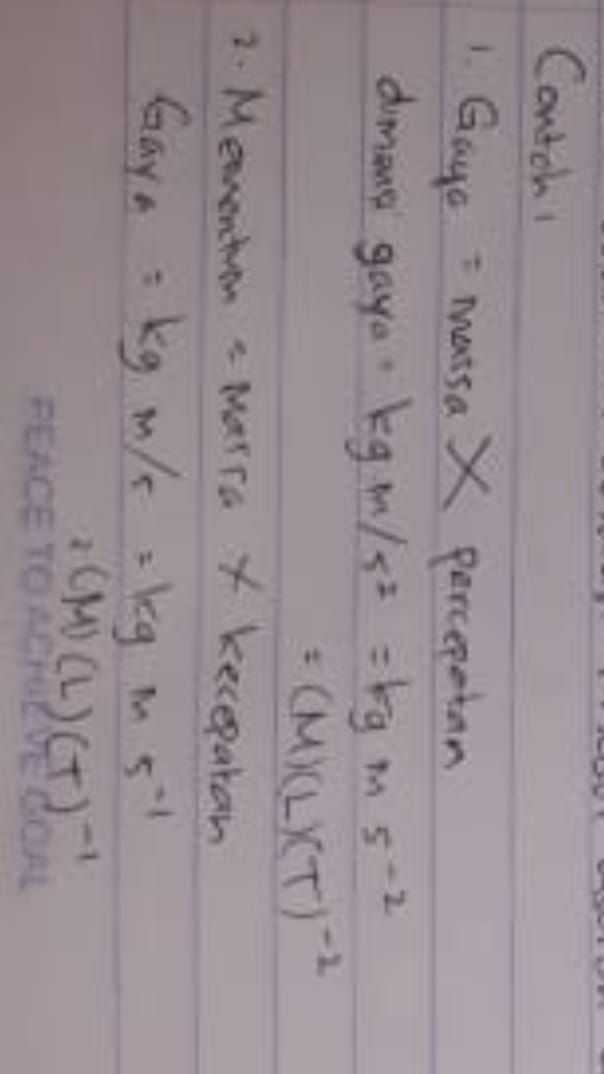 Contoh,
1. Gaya = massa X percepatan
dimensi gaya = kg m/s² = kg m s⁻²
= (M)(L)(T)⁻²
2. Momentum = Massa X kecepatan
Gaya = kg m/s = kg m s⁻¹
= (M)(L)(T)⁻¹
PEACE TO ACHIEVE GOAL